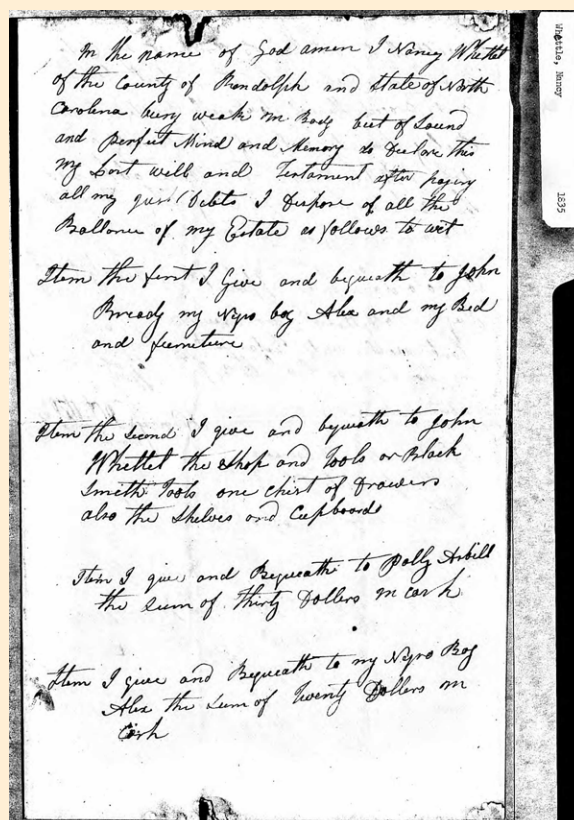 In the name of God amen I Nancy Whettet
of the County of Randolph and State of North
Carolina bevy weak in Body but of Sound
and perfect Mind and Memory do Declare this
my Last will and Testament after paying
all my Just Debts I Dispose of all the
Ballance of my Estate as follows to wit
Item the first I Give and bequeath to John
my Negro boy Alex and my Bed
and furniture
Item the Second I give and bequeath to John
Whettet the Shop and Tools or Black
Smith Tools one Chist of Drawers
also the Shelves and Cupboards
Item I give and Bequeath to Polly
the Sum of Thirty Dollers in Cash
Item I give and Bequeath to my Negro Boy
Alex the Sum of Twenty Dollers in
Cash
Whettle, Nancy
1835